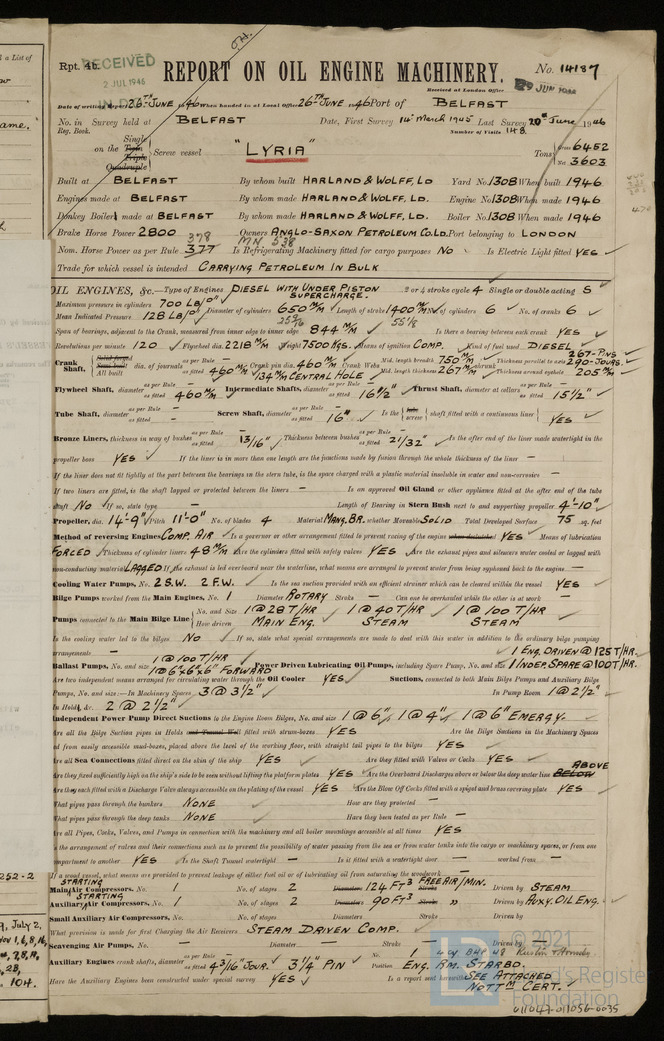 Rpt. 4b.
RECEIVED
2 JUL 1946
REPORT ON OIL ENGINE MACHINERY.
No. 14187
Received at London Office 29 JUN 1946
Date of writing Report 26TH JUNE 1946 When handed in at Local Office 26TH JUNE 1946 Port of BELFAST
No. in Survey held at BELFAST Date, First Survey 14th March 1945 Last Survey 20th June 1946
Reg. Book. Number of Visits 148
on the Single Twin Triple Quadruple Screw vessel "LYRIA" Tons Gross 6452 Net 3603
Built at BELFAST By whom built HARLAND & WOLFF, LD Yard No. 1308 When built 1946
Engines made at BELFAST By whom made HARLAND & WOLFF, LD. Engine No. 1308 When made 1946
Donkey Boilers made at BELFAST By whom made HARLAND & WOLFF, LD. Boiler No. 1308 When made 1946
Brake Horse Power 2800 Owners ANGLO-SAXON PETROLEUM CO. LD. Port belonging to LONDON
378 MN 538
Nom. Horse Power as per Rule 377 Is Refrigerating Machinery fitted for cargo purposes NO Is Electric Light fitted YES
Trade for which vessel is intended CARRYING PETROLEUM IN BULK
OIL ENGINES, &c. Type of Engines DIESEL WITH UNDER PISTON SUPERCHARGE. 2 or 4 stroke cycle 4 Single or double acting S
Maximum pressure in cylinders 700 LB/□" Diameter of cylinders 650 M/M Length of stroke 1400 M/M No. of cylinders 6 No. of cranks 6
Mean Indicated Pressure 128 LB/□" 55 1/8
Span of bearings, adjacent to the Crank, measured from inner edge to inner edge 844 M/M Is there a bearing between each crank YES
Revolutions per minute 120 Flywheel dia. 2218 M/M Weight 7500 KGS. Means of ignition COMP. Kind of fuel used DIESEL
Crank Shaft, Solid forged Semi built All built dia. of journals as per Rule – as fitted 460 M/M Crank pin dia. 460 M/M Crank Webs Mid. length breadth 750 M/M Thickness parallel to axis 267-PINS 290-JOURS.
134 M/M CENTRAL HOLE Mid. length thickness 267 M/M shrunk Thickness around eyehole 205 M/M
Flywheel Shaft, diameter as per Rule – as fitted 460 M/M Intermediate Shafts, diameter as per Rule – as fitted 16 1/2" Thrust Shaft, diameter at collars as per Rule – as fitted 15 1/2"
Tube Shaft, diameter as per Rule – as fitted – Screw Shaft, diameter as per Rule – as fitted 16" Is the tube screw shaft fitted with a continuous liner YES
Bronze Liners, thickness in way of bushes as per Rule – as fitted 13/16" Thickness between bushes as per Rule – as fitted 21/32" Is the after end of the liner made watertight in the
propeller boss YES If the liner is in more than one length are the junctions made by fusion through the whole thickness of the liner –
If the liner does not fit tightly at the part between the bearings in the stern tube, is the space charged with a plastic material insoluble in water and non-corrosive –
If two liners are fitted, is the shaft lapped or protected between the liners – Is an approved Oil Gland or other appliance fitted at the after end of the tube
shaft NO If so, state type – Length of Bearing in Stern Bush next to and supporting propeller 4'-10"
Propeller, dia. 14'-9" Pitch 11'-0" No. of blades 4 Material MANG. BR. whether Moveable SOLID Total Developed Surface 75 sq. feet
Method of reversing Engines COMP. AIR Is a governor or other arrangement fitted to prevent racing of the engine when declutched YES Means of lubrication
FORCED Thickness of cylinder liners 48 M/M Are the cylinders fitted with safety valves YES Are the exhaust pipes and silencers water cooled or lagged with
non-conducting material LAGGED If the exhaust is led overboard near the waterline, what means are arranged to prevent water from being syphoned back to the engine –
Cooling Water Pumps, No. 2 S.W. 2 F.W. Is the sea suction provided with an efficient strainer which can be cleared within the vessel YES
Bilge Pumps worked from the Main Engines, No. 1 Diameter ROTARY Stroke – Can one be overhauled while the other is at work –
Pumps connected to the Main Bilge Line No. and Size 1 @ 28 T/HR 1 @ 40 T/HR 1 @ 100 T/HR
How driven MAIN ENG. STEAM STEAM
Is the cooling water led to the bilges NO If so, state what special arrangements are made to deal with this water in addition to the ordinary bilge pumping
arrangements – 1 ENG. DRIVEN @ 125 T/HR.
Ballast Pumps, No. and size 1 @ 100 T/HR 1 @ 6" x 6" x 6" FORWARD Power Driven Lubricating Oil Pumps, including Spare Pump, No. and size 1 INDEP. SPARE @ 100 T/HR.
Are two independent means arranged for circulating water through the Oil Cooler YES Suctions, connected to both Main Bilge Pumps and Auxiliary Bilge
Pumps, No. and size:—In Machinery Spaces 3 @ 3 1/2" In Pump Room 1 @ 2 1/2"
In Holds, &c. 2 @ 2 1/2"
Independent Power Pump Direct Suctions to the Engine Room Bilges, No. and size 1 @ 6", 1 @ 4" 1 @ 6" EMERGY.
Are all the Bilge Suction pipes in Holds and Tunnel Well fitted with strum-boxes YES Are the Bilge Suctions in the Machinery Spaces
led from easily accessible mud-boxes, placed above the level of the working floor, with straight tail pipes to the bilges YES
Are all Sea Connections fitted direct on the skin of the ship YES Are they fitted with Valves or Cocks YES
Are they fixed sufficiently high on the ship's side to be seen without lifting the platform plates YES Are the Overboard Discharges above or below the deep water line ABOVE BELOW
Are they each fitted with a Discharge Valve always accessible on the plating of the vessel YES Are the Blow Off Cocks fitted with a spigot and brass covering plate YES
What pipes pass through the bunkers NONE How are they protected –
What pipes pass through the deep tanks NONE Have they been tested as per Rule –
Are all Pipes, Cocks, Valves, and Pumps in connection with the machinery and all boiler mountings accessible at all times YES
Is the arrangement of valves and their connections such as to prevent the possibility of water passing from the sea or from water tanks into the cargo or machinery spaces, or from one
compartment to another YES Is the Shaft Tunnel watertight – Is it fitted with a watertight door – worked from –
If a wood vessel, what means are provided to prevent leakage of either fuel oil or of lubricating oil from saturating the woodwork –
STARTING Main Air Compressors, No. 1 No. of stages 2 Diameters 124 FT³ FREE AIR/MIN. Stroke Driven by STEAM
STARTING Auxiliary Air Compressors, No. 1 No. of stages 2 Diameters 90 FT³ Stroke " Driven by AUXY. OIL ENG.
Small Auxiliary Air Compressors, No. No. of stages Diameters Stroke Driven by
What provision is made for first Charging the Air Receivers STEAM DRIVEN COMP.
Scavenging Air Pumps, No. – Diameter – Stroke – Driven by –
Auxiliary Engines crank shafts, diameter as per Rule – as fitted 4 3/16" JOUR. 3 1/4" PIN No. 1 Ruston & Hornsby
Position ENG. RM. STARBD.
Have the Auxiliary Engines been constructed under special survey YES Is a report sent herewith SEE ATTACHED NOTTM CERT.
© 2021
Lloyd's Register Foundation
011047-011056-0035
a List of
ame.
252-2
9, July 2,
104.